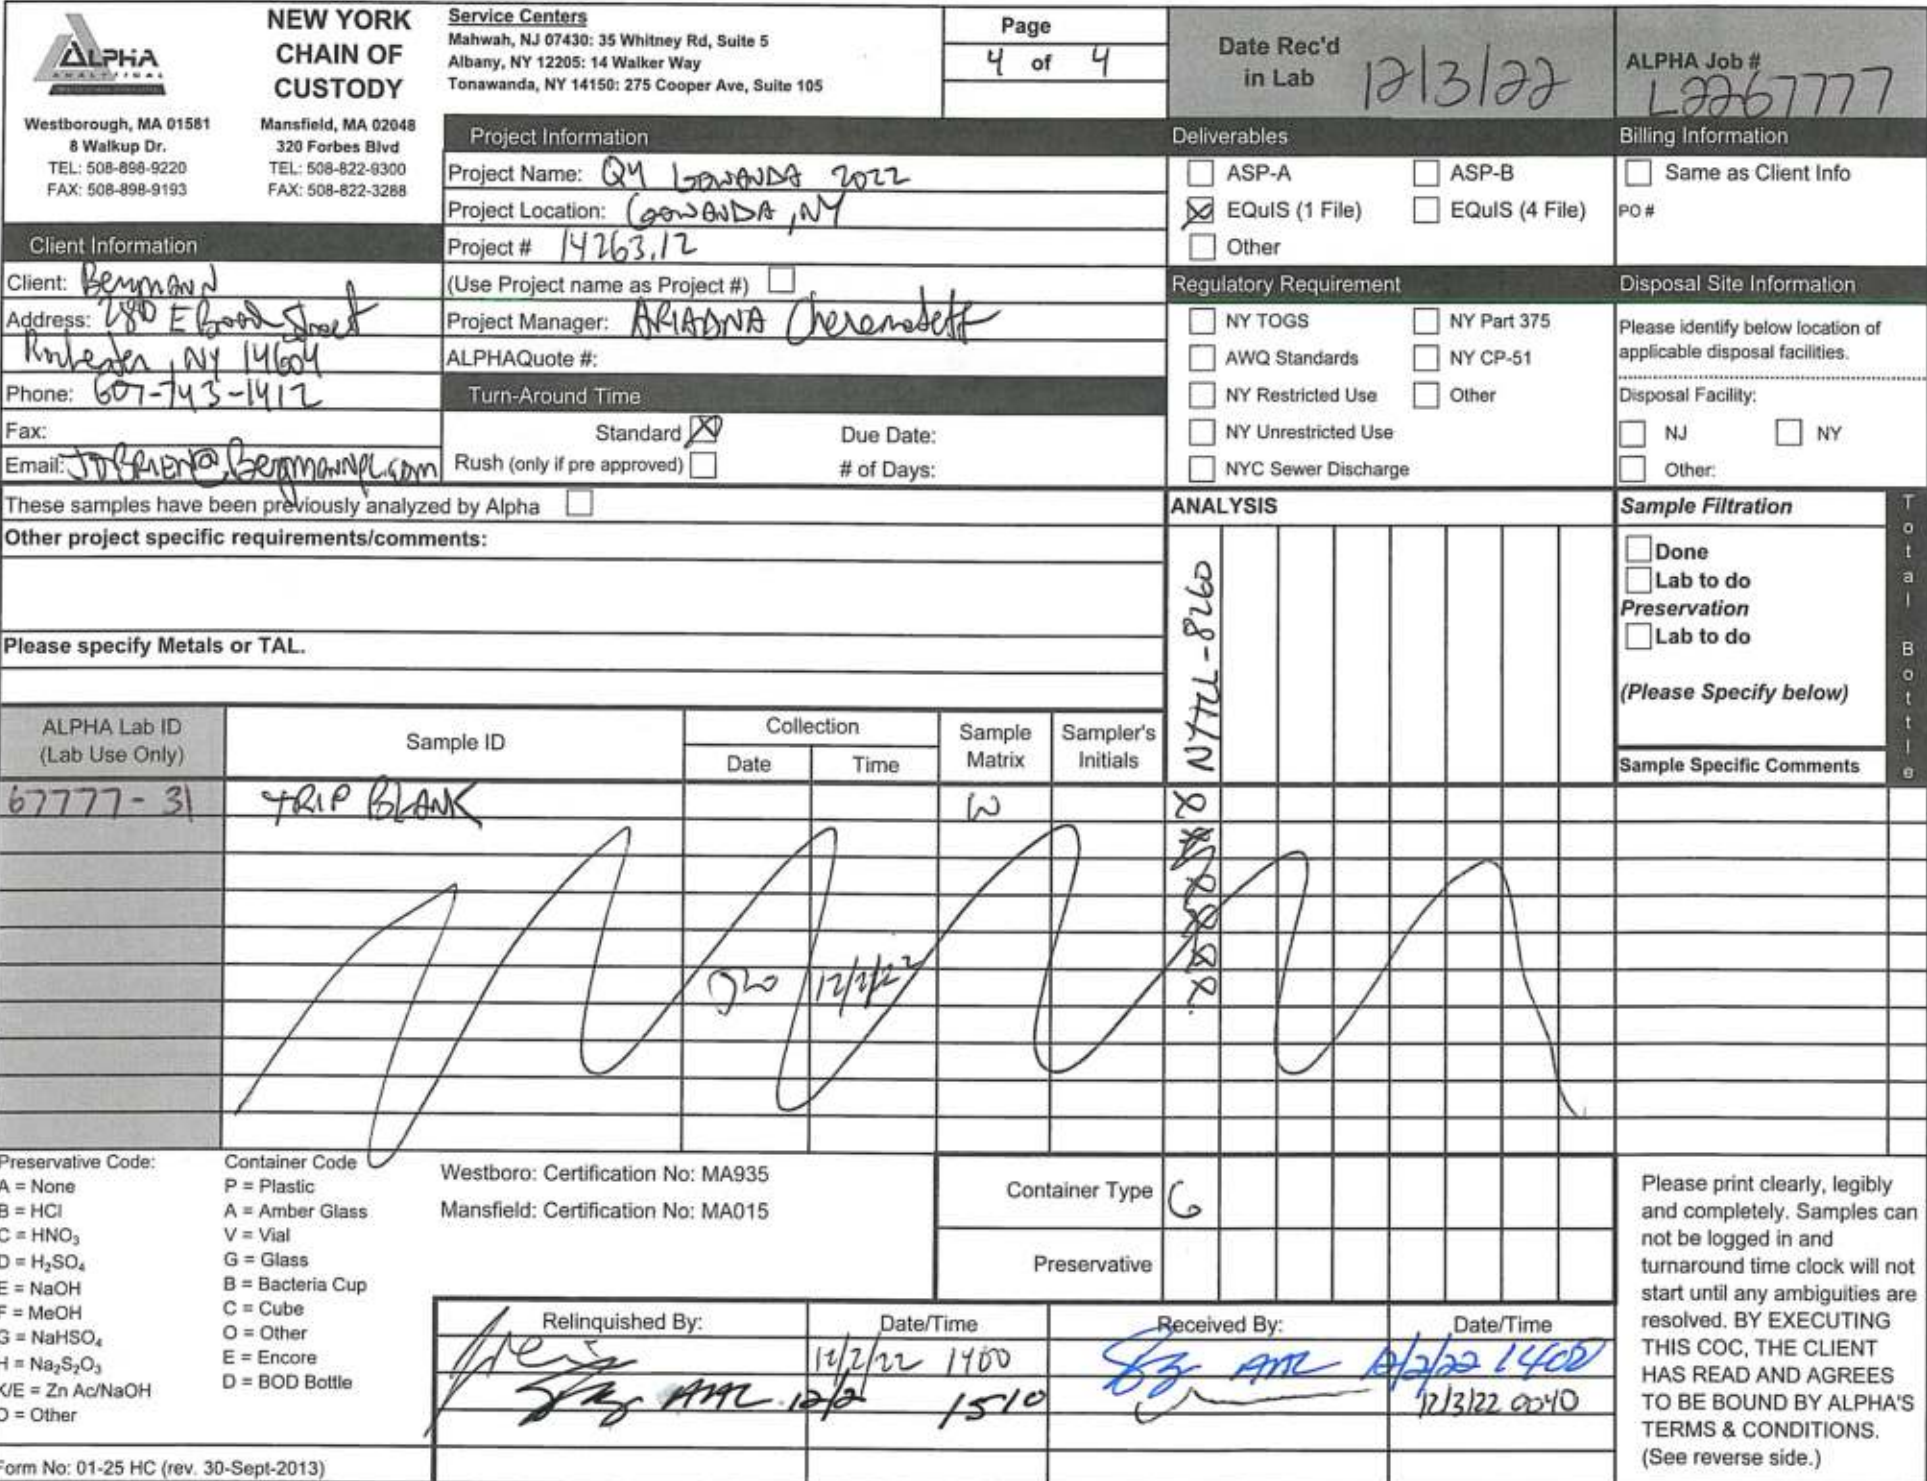 ALPHA
ANALYTICAL
Westborough, MA 01581
8 Walkup Dr.
TEL: 508-898-9220
FAX: 508-898-9193
NEW YORK
CHAIN OF
CUSTODY
Mansfield, MA 02048
320 Forbes Blvd
TEL: 508-822-9300
FAX: 508-822-3288
Service Centers
Mahwah, NJ 07430: 35 Whitney Rd, Suite 5
Albany, NY 12205: 14 Walker Way
Tonawanda, NY 14150: 275 Cooper Ave, Suite 105
Page
4 of 4
Date Rec'd
in Lab
12/3/22
ALPHA Job #
L2267777
Client Information
Client: Bergmann
Address: 280 E Broad Street
Rochester, NY 14604
Phone: 607-743-1412
Fax:
Email: JOBRIEN@Bergmannpc.com
Project Information
Project Name: Q4 GOWANDA 2022
Project Location: GOWANDA, NY
Project # 14263.12
(Use Project name as Project #)
Project Manager: ARIADNA Cheremeteff
ALPHAQuote #:
Turn-Around Time
Standard X Due Date:
Rush (only if pre approved) # of Days:
Deliverables
ASP-A ASP-B
X EQuIS (1 File) EQuIS (4 File)
Other
Regulatory Requirement
NY TOGS NY Part 375
AWQ Standards NY CP-51
NY Restricted Use Other
NY Unrestricted Use
NYC Sewer Discharge
Billing Information
Same as Client Info
PO #
Disposal Site Information
Please identify below location of
applicable disposal facilities.
Disposal Facility:
NJ NY
Other:
These samples have been previously analyzed by Alpha
Other project specific requirements/comments:
Please specify Metals or TAL.
ANALYSIS
NYTCL-8260
Sample Filtration
Done
Lab to do
Preservation
Lab to do
(Please Specify below)
Total Bottle
ALPHA Lab ID
(Lab Use Only)
Sample ID
Collection
Date Time
Sample
Matrix
Sampler's
Initials
Sample Specific Comments
67777-31 TRIP BLANK W X
12/2/22
Preservative Code:
A = None
B = HCl
C = HNO₃
D = H₂SO₄
E = NaOH
F = MeOH
G = NaHSO₄
H = Na₂S₂O₃
K/E = Zn Ac/NaOH
O = Other
Container Code
P = Plastic
A = Amber Glass
V = Vial
G = Glass
B = Bacteria Cup
C = Cube
O = Other
E = Encore
D = BOD Bottle
Westboro: Certification No: MA935
Mansfield: Certification No: MA015
Container Type G
Preservative
Relinquished By: Date/Time Received By: Date/Time
12/2/22 1400 AAL 12/2/22 1400
AAL 12/2 1510 12/3/22 0040
Please print clearly, legibly
and completely. Samples can
not be logged in and
turnaround time clock will not
start until any ambiguities are
resolved. BY EXECUTING
THIS COC, THE CLIENT
HAS READ AND AGREES
TO BE BOUND BY ALPHA'S
TERMS & CONDITIONS.
(See reverse side.)
Form No: 01-25 HC (rev. 30-Sept-2013)